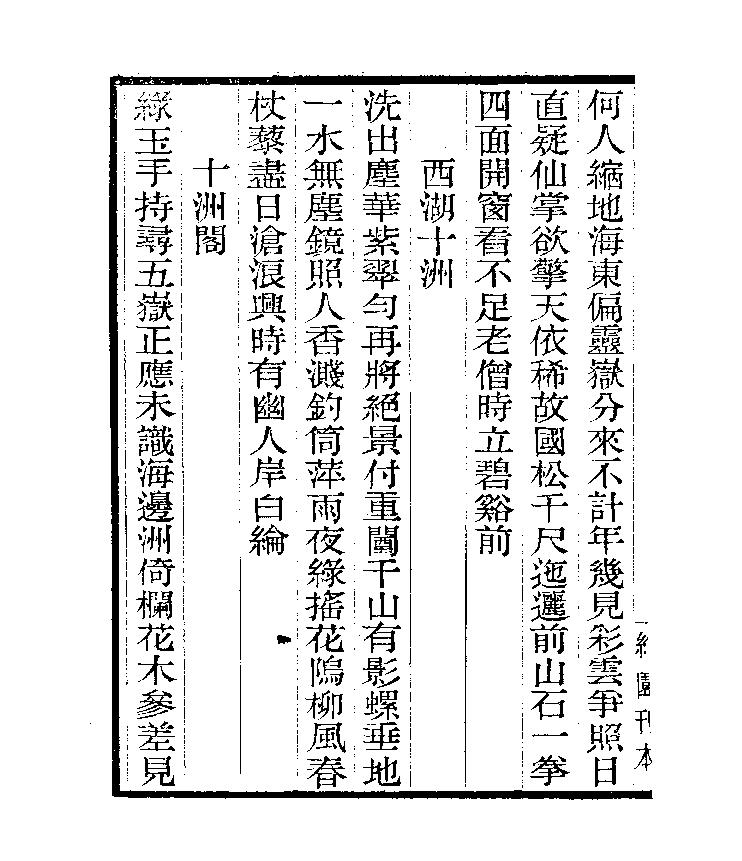 何人縮地海東偏靈嶽分來不計年幾見彩雲爭照日
直疑仙掌欲擎天依稀故國松千尺迤邐前山石一拳
四面開窗看不足老僧時立碧谿前
西湖十洲
洗出塵華紫翠勻再將絕景付重闉千山有影螺垂地
一水無塵鏡照人香濺釣筒萍雨夜綠搖花隖柳風春
杖藜盡日滄浪興時有幽人岸白綸
十洲閣
綠玉手持尋五嶽正應未識海邊洲倚欄花木參差見
約園刊本